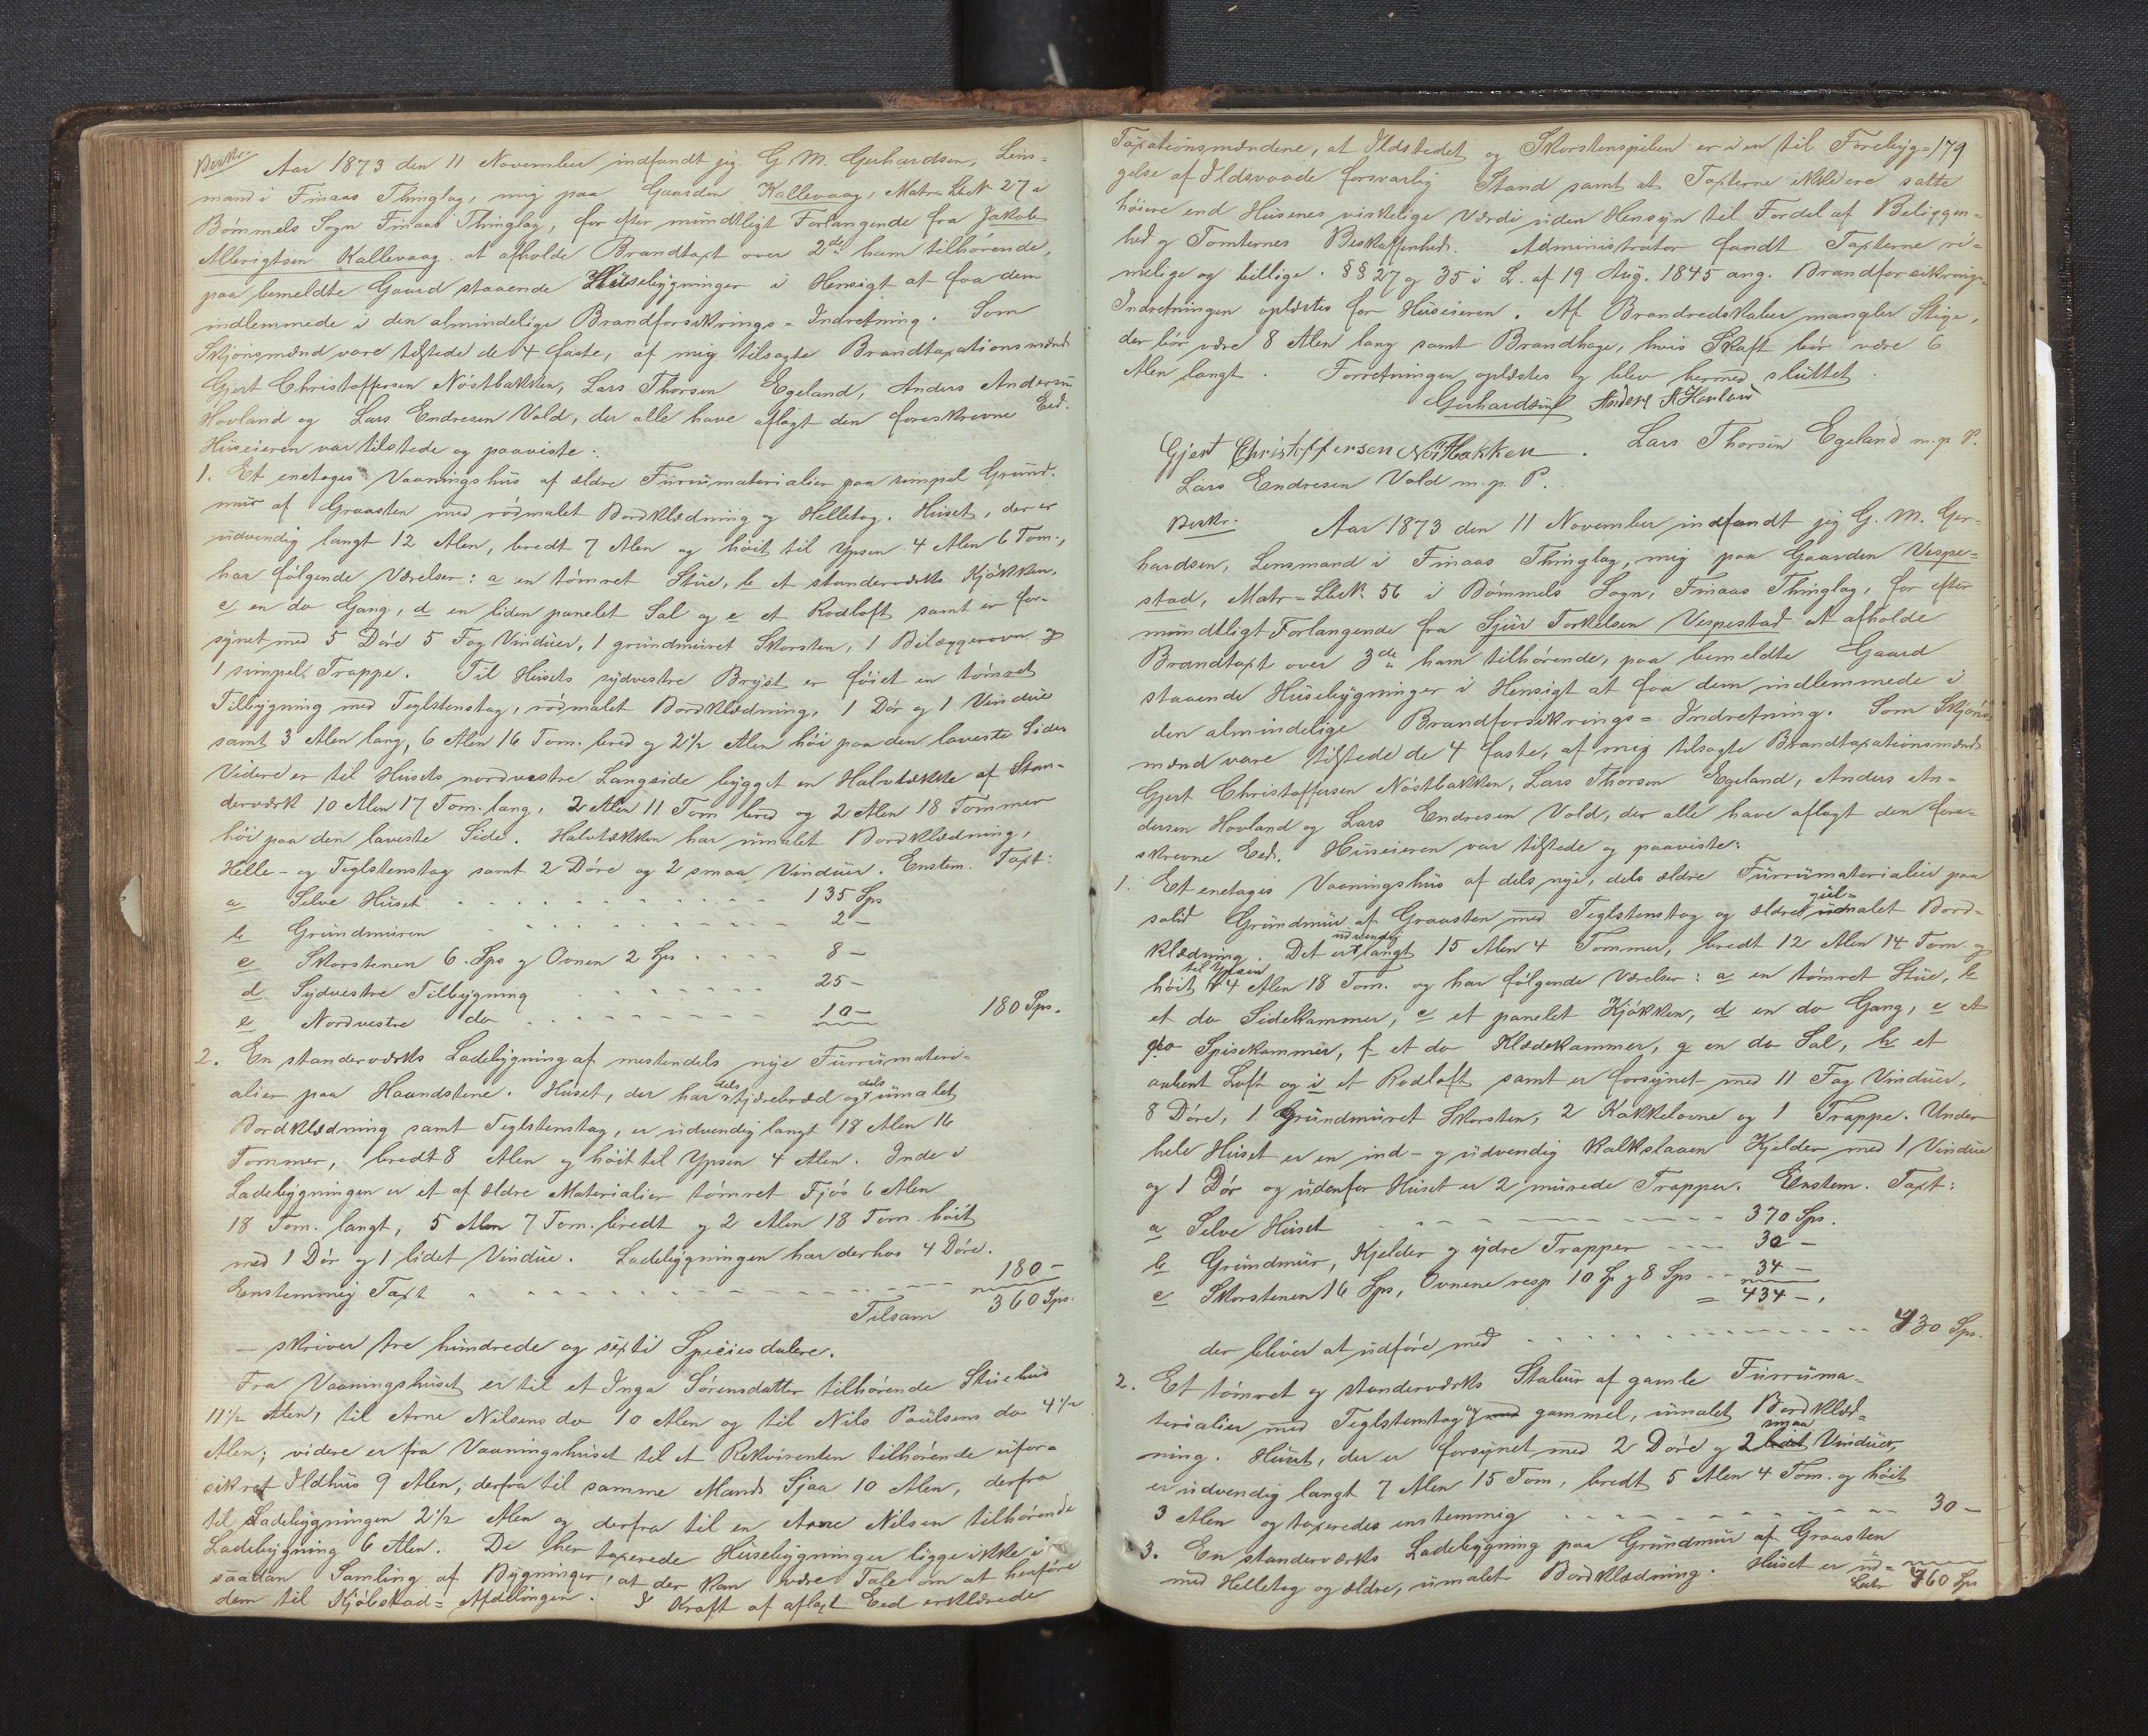 Beskr. Aar 1873 den 11 November indfandt jeg G. M. Gerhardsen, Lens-
mand i Finaas Thinglag, mig paa Gaarden Kallevaag, Matr=Løb№ 27 i
Bömmels Sogn Finaas Thinglag, for efter mündtligt Forlangende fra Jakob
Albrigtsen Kallevaag at afholde Brandtaxt over 2de ham tilhörende,
paa bemeldte Gaard staaende Hüsebygninger i Hensigt at faa dem
indlemmede i den almindelige Brandforsikrings=Indretning. Som
Skjönsmænd vare tilstede de 4 faste, af mig tilsagte Brandtaxationsmænd
Gjert Christoffersen Nöstbakken, Lars Thorsen Egeland, Anders Andersen
Hovland og Lars Endresen Vold, der alle have aflagt den foreskrevne Eed.
Hüseieren var tilstede og paaviste:
1. Et enetages Vaaningshüs af ældre Fürrümaterialier paa simpel Gründ-
mür af Graasten med rödmalet Bordklædning og Helletag. Hüset, der er
üdvendig langt 12 Alen, bredt 7 Alen og höit til Ypsen 4 Alen 6 Tom.,
har fölgende Værelser: a en tömret Stüe, b et standerværks Kjökken,
c en do Gang, d en liden panelet Sal og e et Rodloft samt er for-
synet med 5 Döre 5 Fag Vindüer, 1 gründmüret Skorsten, 1 Bilæggerovn og
1 simpel Trappe. Til Hüsets sydvestre Bryst er föiet en tömret
Tilbygning med Teglstenstag, rödmalet Bordklædning, 1 Dör og 1 Vindüe
samt 3 Alen lang, 6 Alen 16 Tom. bred og 2 1/2 Alen höi paa den laveste Side.
Videre er til Hüsets nordvestre Langside bygget en Halvtække af Stan-
derværk 10 Alen 17 Tom. lang, 2 Alen 11 Tom bred og 2 Alen 18 Tommer
höi paa den laveste Side. Halvtækken har ümalet Bordklædning,
Helle- og Teglstenstag samt 2 Döre og 2 smaa Vindüer. Enstem. Taxt:
a Selve Hüset 135 Sps
b Gründmüren 2 -
c Skorstenen 6 Sps og Ovnen 2 Sps 8 -
d Sydvestre Tilbygning 25 -
e Nordvestre do 10 - 180 Sps.
2. En standerværks Ladebygning af mestendels nye Fürrümateri-
alier paa Haandstene. Hüset, der har dels tjærebræd og dels ümalet
Bordklædning samt Teglstenstag, er üdvendig langt 18 Alen 16
Tommer, bredt 8 Alen og höit til Ypsen 4 Alen. Inde i
Ladebygningen er et af ældre Materialier tömret Fjös 6 Alen
18 Tom. langt, 5 Alen 7 Tom. bredt og 2 Alen 18 Tom. höit
med 1 Dör og 1 lidet Vindüe. Ladebygningen har derhos 4 Döre.
Enstemmig Taxt 180 -
Tilsam 360 Sps.
- skriver tre hündrede og sexti Speciesdalere.
Fra Vaaningshüset er til et Inga Sörensdatter tilhörende Stüehüs
11 1/2 Alen, til Arne Nilsens do 10 Alen og til Nils Paülsens do 4 1/2
Alen; videre er fra Vaaningshüset til et Rekvirenten tilhörende üfor-
sikret Ildhüs 9 Alen, derfra til samme Mands Sjaa 10 Alen, derfra
til Ladebygningen 2 1/2 Alen og derfra til en Arne Nilsen tilhörende
Ladebygning 6 Alen. De her taxerede Hüsebygninger ligge ikke i
saadan Samling af Bygninger, at der kan være Tale om at henföre
dem til Kjöbstad=Afdelingen. I Kraft af aflagt Eed erklærede
Taxationsmændene, at Ildstedet og Skorstenspiben er i en til Forebyg= 179
gelse af Ildsvaade forsvarlig Stand samt at Taxterne ikke ere satte
höiere end Hüsenes virkelige Værdi üden Hensyn til Fordel af Beliggen-
hed og Tomternes Beskaffenhed. Administrator fandt Taxterne ri-
melige og billige. §§ 27 og 35 i L. af 19 Aüg. 1845 ang. Brandforsikrings-
Indretningen oplæstes for Hüseieren. Af Brandredskaber mangler Stige,
der bör være 8 Alen lang samt Brandhage, hvis Skaft bör være 6
Alen langt. Forretningen oplæstes og blev hermed slüttet.
Gerhardsen Anders A Hovland
Gjert Christoffersen Nöstbakken. Lars Thorsen Egeland m. p. P.
Lars Endresen Vold m. p. P.
Beskr. Aar 1873 den 11 November indfandt jeg G. M. Ger-
hardsen, Lensmand i Finaas Thinglag, mig paa Gaarden Vespe-
stad, Matr=Løb№ 56 i Bömmels Sogn, Finaas Thinglag, for efter
mündtligt Forlangende fra Sjür Torkelsen Vespestad at afholde
Brandtaxt over 3de ham tilhörende, paa bemeldte Gaard
staaende Hüsebygninger i Hensigt at faa dem indlemmede i
den almindelige Brandforsikrings=Indretning. Som Skjöns-
mænd vare tilstede de 4 faste, af mig tilsagte Brandtaxationsmænd
Gjert Christoffersen Nöstbakken, Lars Thorsen Egeland, Anders An-
dersen Hovland og Lars Endresen Vold, der alle have aflagt den fore-
skrevne Eed. Hüseieren var tilstede og paaviste:
1. Et enetages Vaaningshüs af dels nye, dels ældre Fürrümaterialier paa
solid Gründmür af Graasten med Teglstenstag og ældre gül=malet Bord-
klædning. Det er üdvendig langt 15 Alen 4 Tommer, bredt 12 Alen 14 Tom. og
höit til Ypsen 4 Alen 18 Tom. og har fölgende Værelser: a en tömret Stüe, b
et do Sidekammer, c et panelet Kjökken, d en do Gang, e et
do Spisekammer, f et do Klædekammer, g en do Sal, h et
aabent Loft og i et Rodloft samt er forsynet med 11 Fag Vindüer,
8 Döre, 1 Gründmüret Skorsten, 2 Kakkelovne og 1 Trappe. Under
hele Hüset er en ind- og üdvendig kalkslaaen Kjelder med 1 Vindüe
og 1 Dör og üdenfor Hüset er 2 mürede Trapper. Enstem. Taxt:
a Selve Hüset 370 Sps.
b Gründmür, Kjelder og ydre Trapper 30 -
c Skorstenen 16 Sps, Ovnene resp 10 Sp og 8 Sps 34 -
= 434 -,
der bliver at üdföre med 430 Sps.
2. Et tömret og standerværks Staltür af gamle Fürrüma-
terialier med Teglstenstag og gammel, ümalet Bordklæd-
ning. Hüset, der er forsynet med 2 Döre og 2 smaa Vindüer,
er üdvendig langt 7 Alen 15 Tom, bredt 5 Alen 4 Tom. og höit
3 Alen og taxeredes enstemmig 30 -
3. En standerværks Ladebygning paa Gründmür af Graasten
med Helletag og ældre, ümalet Bordklædning. Hüset er üd-
Latr 460 Sps